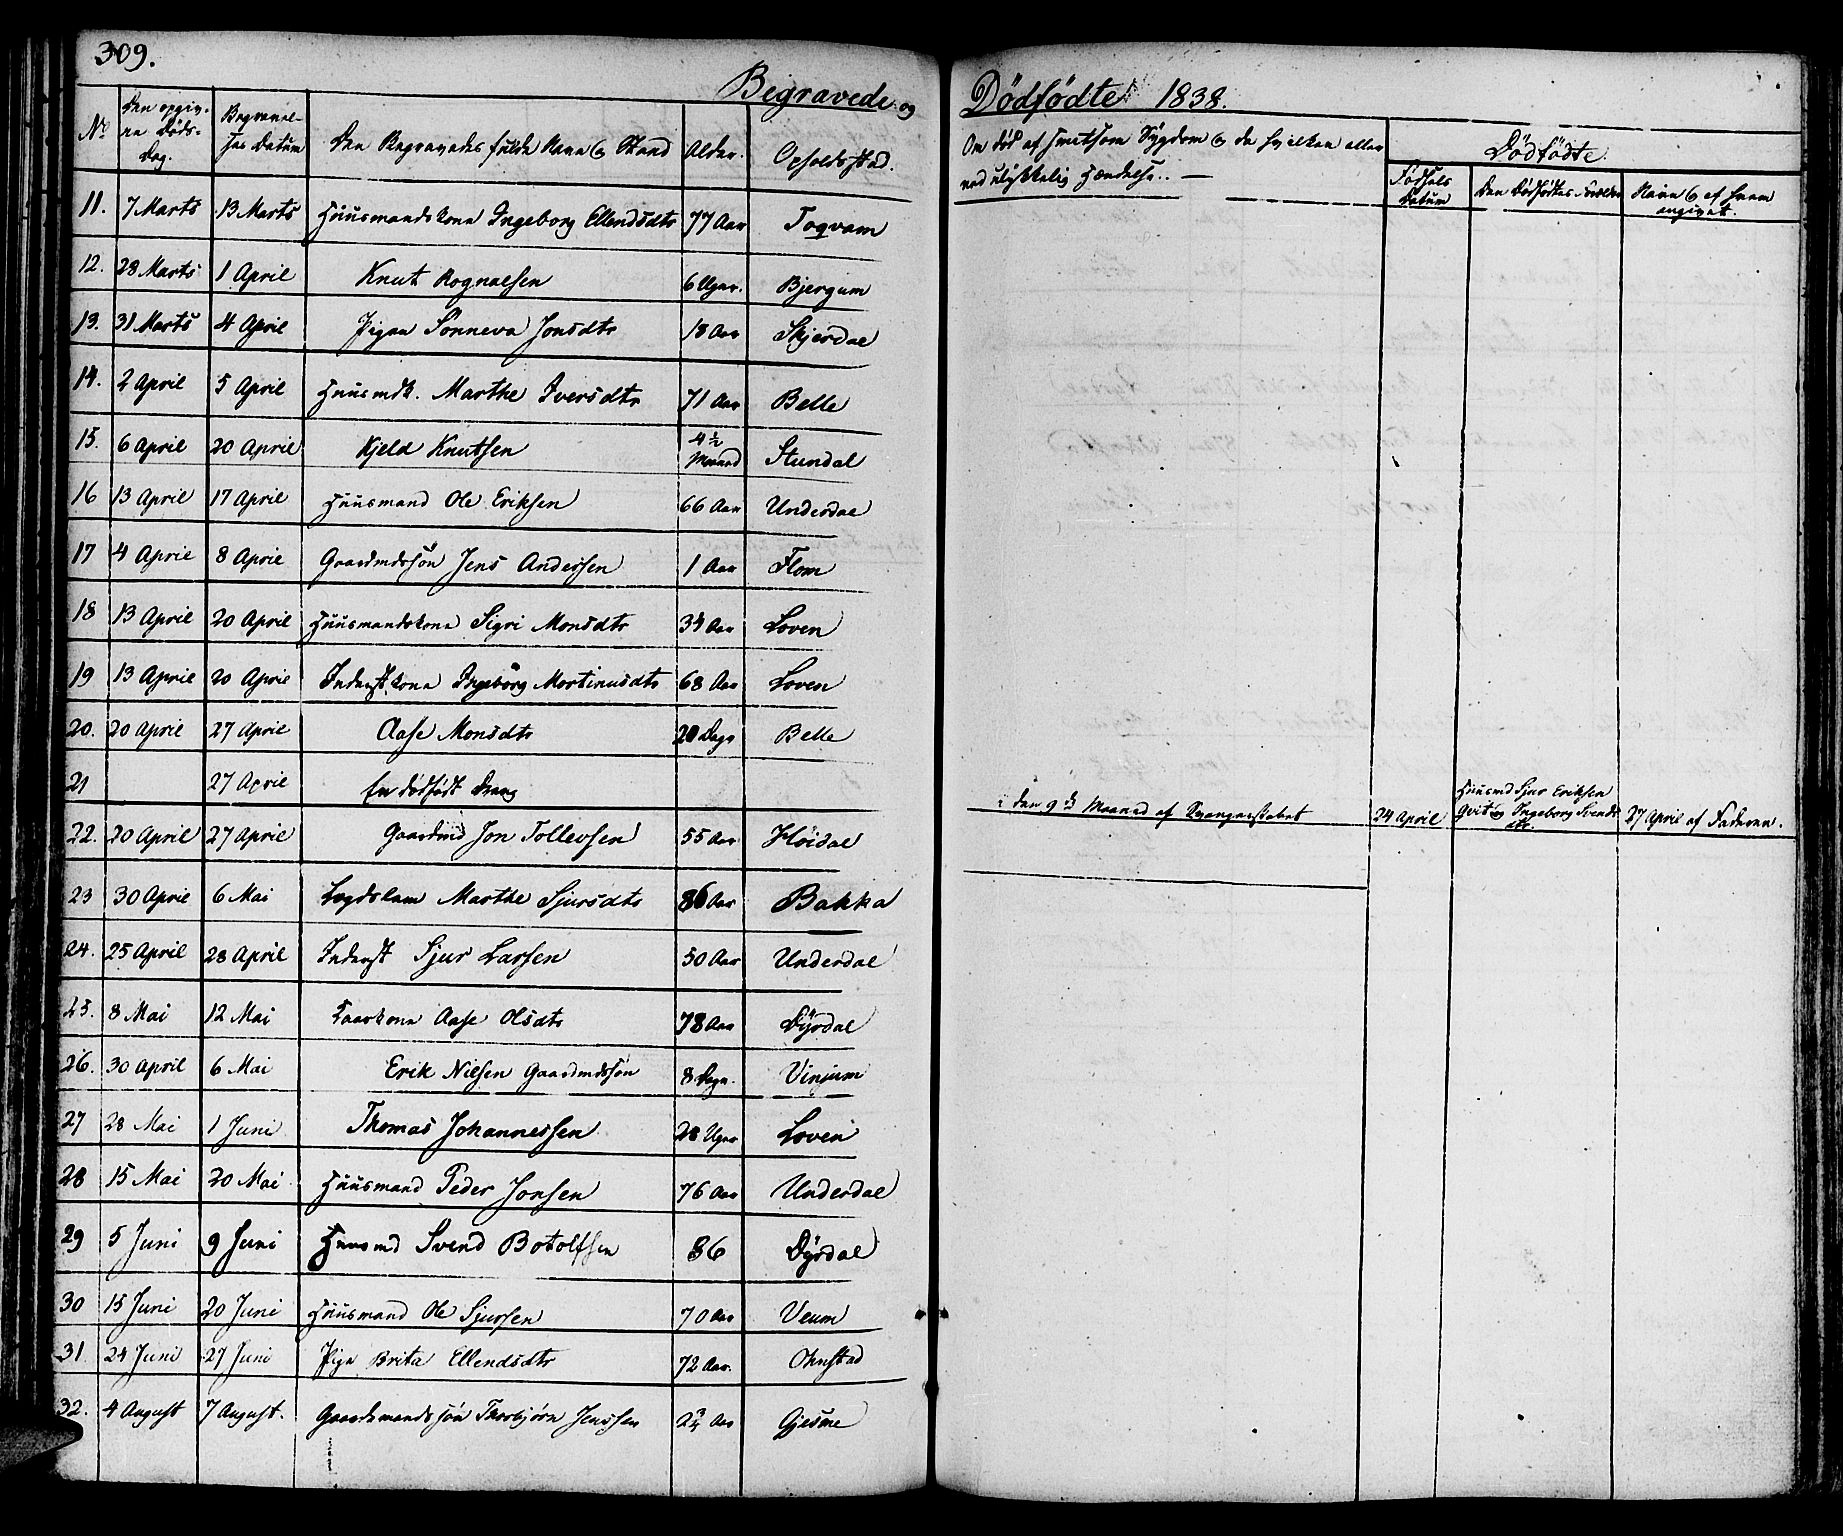 309.
Begravede og Dödfödte 1838.
No Den opgivne Döds-Dag. Begravelses Datum Den Begravedes fulde Navn og Stand Alder. Opholdsstad. Om död af smitsom Sygdom og da hvilken eller ved ulykkelig Hændelse. Dödfödte.
Födsels Datum Den Dödfödtes Forældre Navn og af hvem angivet.
11. 7 Marts 13 Marts Huusmandskone Ingeborg Ellendsdtr 77 Aar Toqvam
12. 28 Marts 1 April Knut Rognalsen 6 Uger. Bjergum
13. 31 Marts 4 April Pigen Sönneva Jonsdtr 18 Aar Skjerdal
14. 2 April 5 April Huusmdk. Marthe Iversdtr 71 Aar Belle
15. 6 April 20 April Kjeld Knutsen 4 ½ Maaned Stundal
16 13 April 17 April Huusmand Ole Eriksen 66 Aar Underdal
17 4 April 8 April Gaardmdssön Jens Andersen 1 Aar Flom
18 13 April 20 April Huusmandskone Sigri Monsdtr 34 Aar Loven
19 13 April 20 April Inderstkone Ingeborg Mortinusdtr 68 Aar Loven
20. 20 April 27 April Aase Monsdtr 20 Dage Belle
21 27 April En dödfödt Dreng i den 9de Maaned af Svangerskabet 24 April Huusmd Sjur Eriksen Qvit og Ingeborg Svendsdtr. 27 April af Faderen.
22. 20 April 27 April Gaardmd Jon Tollevsen 55 Aar Höidal
23 30 April 6 Mai Lægdslem Marthe Sjursdtr 86 Aar Bakka
24. 25 April 28 April Inderst Sjur Larsen 50 Aar Underdal
25. 8 Mai 12 Mai Kaarkone Aase Olsdtr 78 Aar Dyrdal
26. 30 April 6 Mai Erik Nielsen Gaardmdssön 8 Dage. Vinjum
27 28 Mai 1 Juni Thomas Johannessen 28 Uger Loven
28 15 Mai 20 Mai Huusmand Peder Jonsen 76 Aar Underdal
29 5 Juni 9 Juni Huusmd Svend Botolfsen 86 Dyrdal
30 15 Juni 20 Juni Huusmand Ole Sjursen 70 Aar Veum
31. 24 Juni 27 Juni Pige Brita Ellendsdtr 72 Aar. Ohnstad
32. 4 August 7 August. Gaardmandssön Thorbjörn Jenssen Aar Gjesme